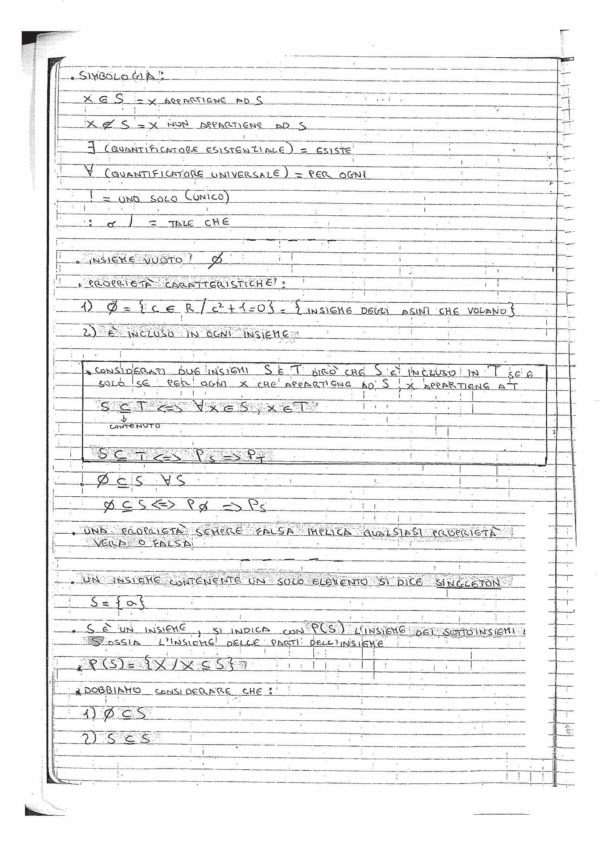 • SIMBOLOGIA:
x ∈ S = x APPARTIENE AD S
x ∉ S = x NON APPARTIENE AD S
∃ (QUANTIFICATORE ESISTENZIALE) = ESISTE
∀ (QUANTIFICATORE UNIVERSALE) = PER OGNI
! = UNO SOLO (UNICO)
: o / = TALE CHE
• INSIEME VUOTO: ∅
• PROPRIETÀ CARATTERISTICHE:
1) ∅ = {c ∈ R / c²+1=0} = {INSIEME DEGLI ASINI CHE VOLANO}
2) È INCLUSO IN OGNI INSIEME
• CONSIDERATI DUE INSIEMI S E T DIRÒ CHE S È INCLUSO IN T SE E
SOLO SE PER OGNI x CHE APPARTIENE AD S, x APPARTIENE A T
S ⊆ T <=> ∀x∈S, x∈T
↓
CONTENUTO
S ⊆ T <=> Ps => PT
∅ ⊆ S ∀S
∅ ⊆ S <=> P∅ => Ps
• UNA PROPRIETÀ SEMPRE FALSA IMPLICA QUALSIASI PROPRIETÀ
VERA O FALSA
• UN INSIEME CONTENENTE UN SOLO ELEMENTO SI DICE SINGLETON
S = {a}
• S È UN INSIEME, SI INDICA CON P(S) L'INSIEME DEI SOTTOINSIEMI
OSSIA L'INSIEME DELLE PARTI DELL'INSIEME
• P(S) = {X / X ⊆ S}
• DOBBIAMO CONSIDERARE CHE:
1) ∅ ⊆ S
2) S ⊆ S